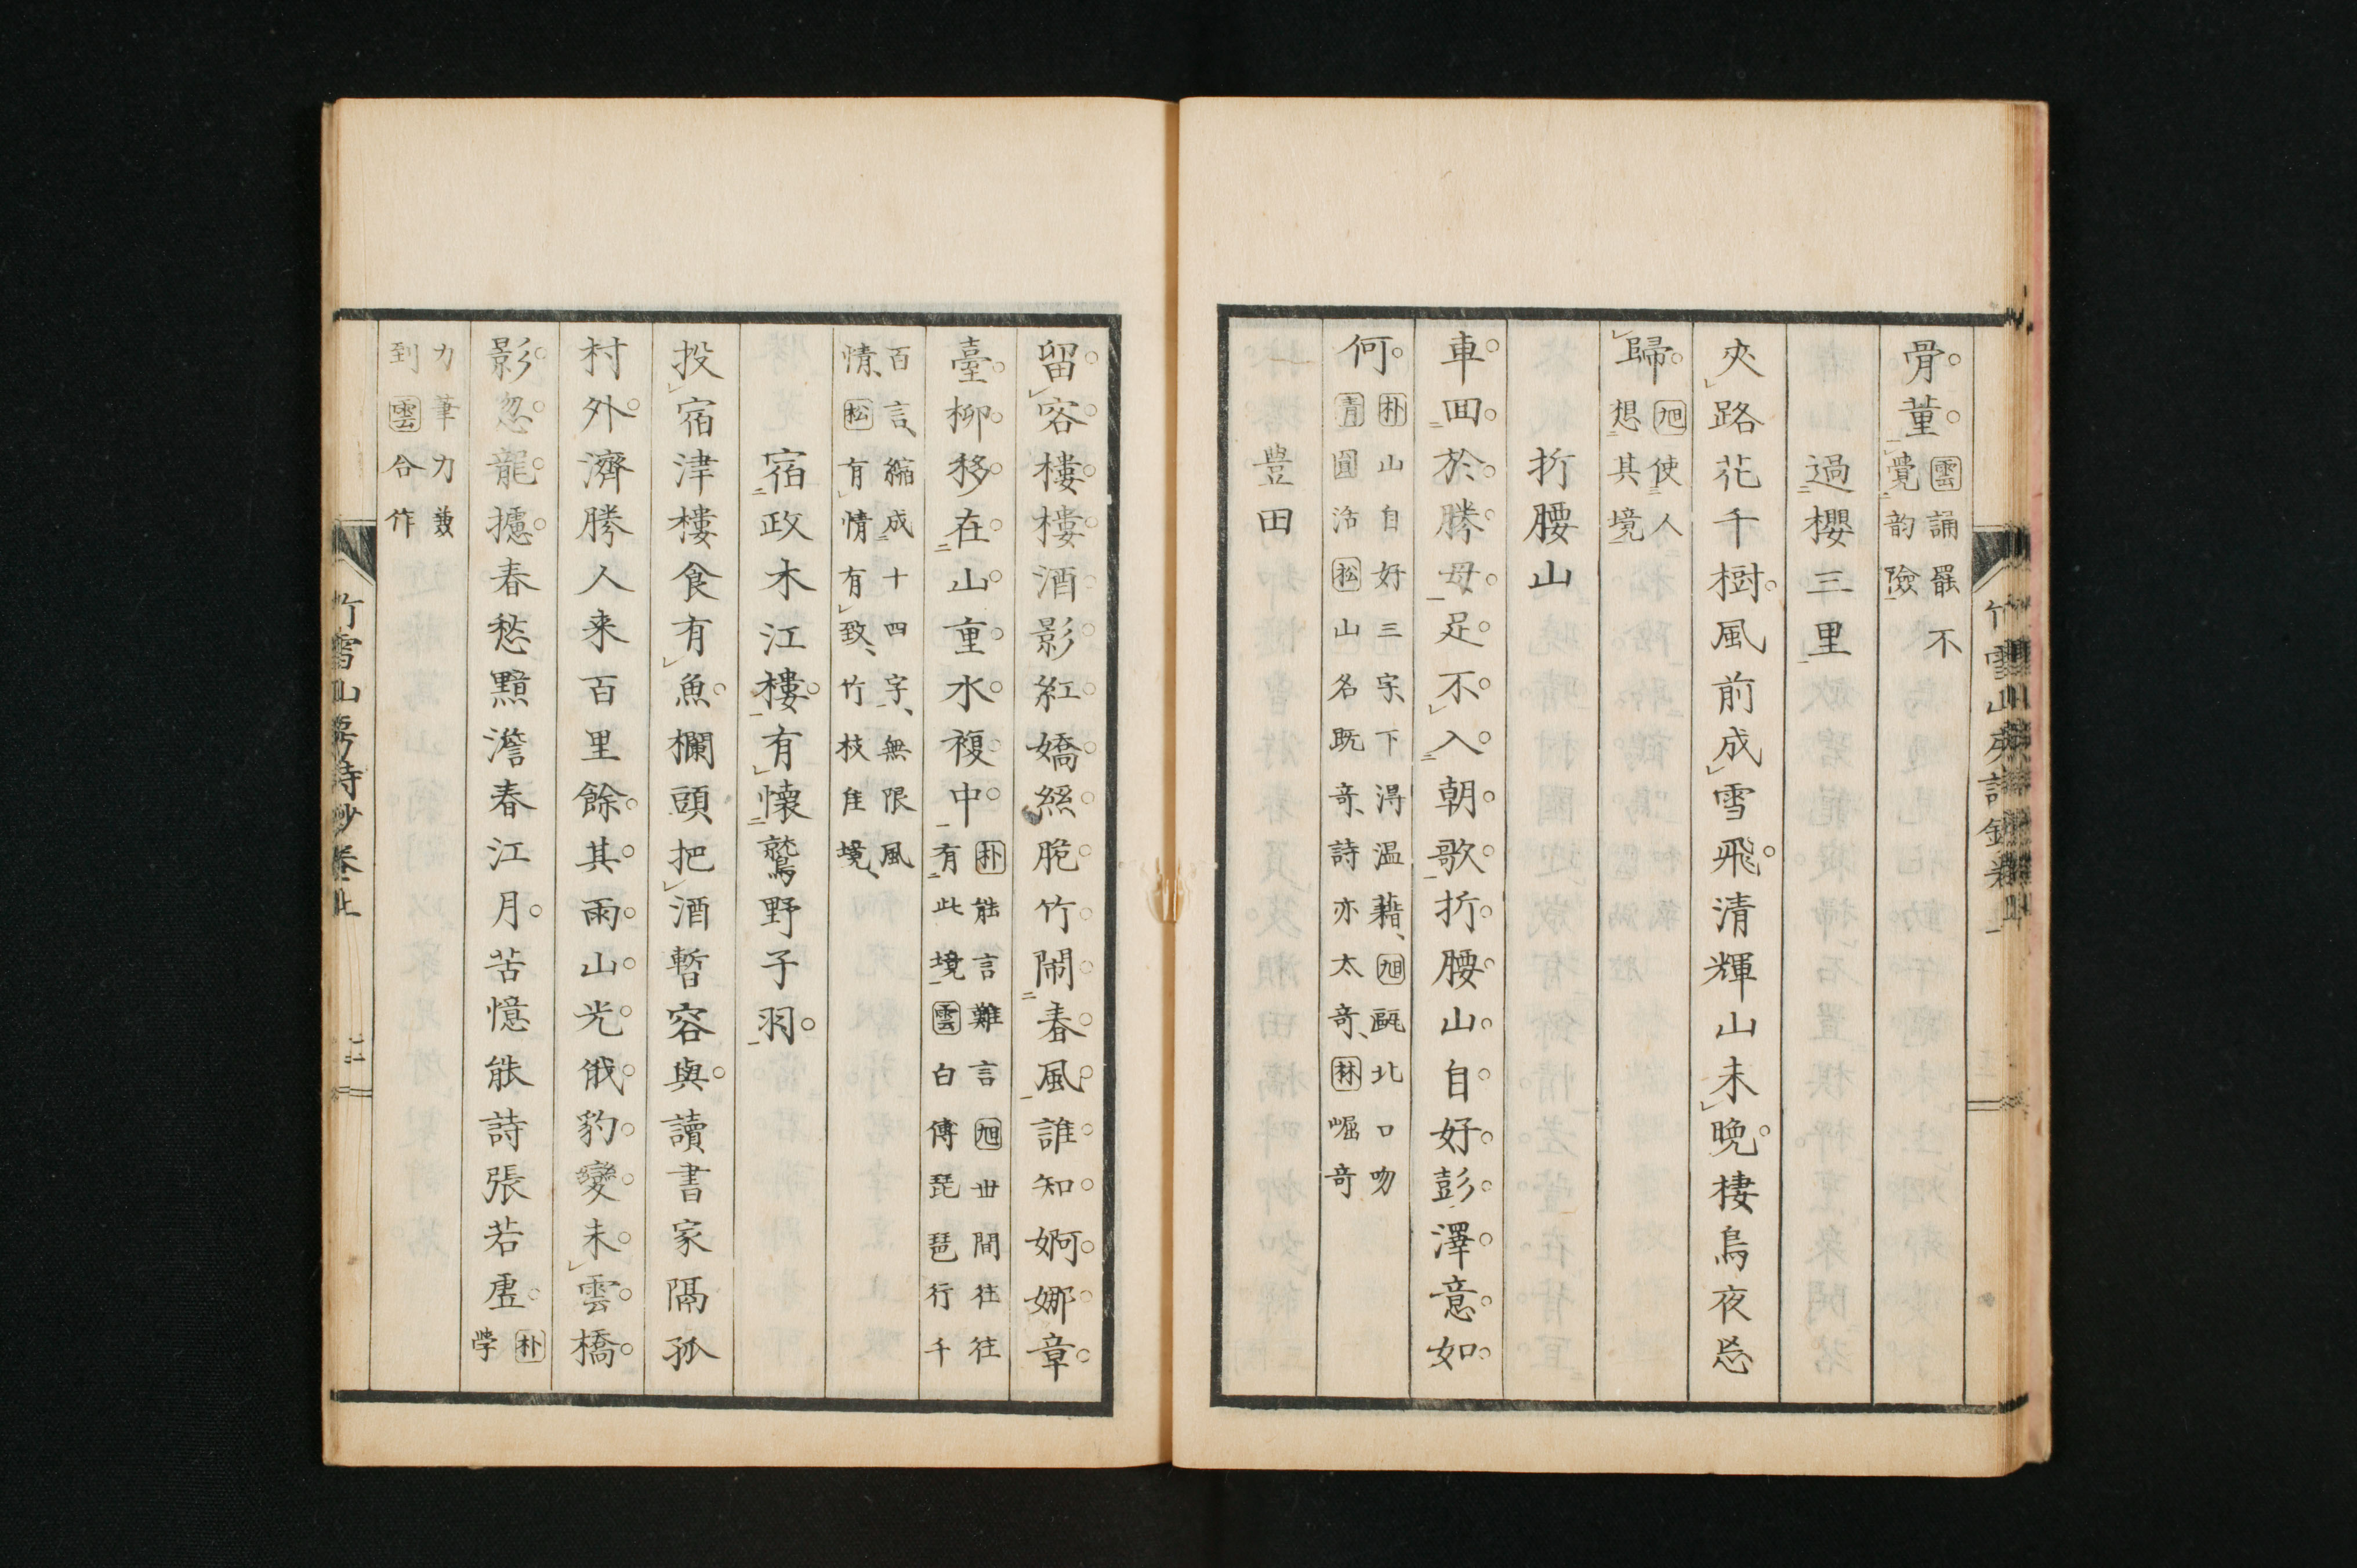 骨董。雲誦罷不
覺韵險
過櫻三里
夾路花千樹。風前成雪飛。清輝山未晩。棲鳥夜忘
歸。旭使人
想其境
折腰山
車回。於。勝。母。足。不。入。朝。歌。折。腰。山。自。好。彭。澤。意。如。
何。朴山自好三字、下得温藉、旭甌北口吻
青圓活松山名既奇、詩亦太奇、林崛奇
豊田
留。容。樓。樓。酒。影。紅。嬌。絲。脆。竹。閙。春。風。誰。知。婀。娜。章。
臺。柳。移。在。山。重。水。複。中。朴能言難言旭世間往往
有此境雲白傅琵琶行千
百言、縮成十四字、無限風
情、松有情有致、竹枝佳境、
宿政木江樓。有懷鷲野子羽。
投宿津樓食有魚。欄頭把酒暫容與。讀書家隔孤
村外。濟勝人来百里餘。其。雨。山。光。俄。豹。變。未。雲。橋。
影。忽。龍。攄。春愁黯澹春江月。苦憶能詩張若虚。朴学
力筆力兼
到雲合作
竹雪山房詩鈔卷上 二